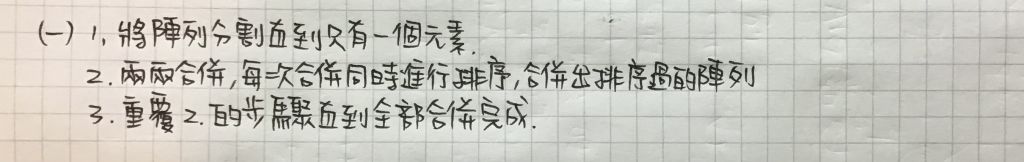 (一) 1. 將陣列分割直到只有一個元素.
2. 兩兩合併,每次合併同時進行排序,合併出排序過的陣列
3. 重覆 2. 的步驟直到全部合併完成.